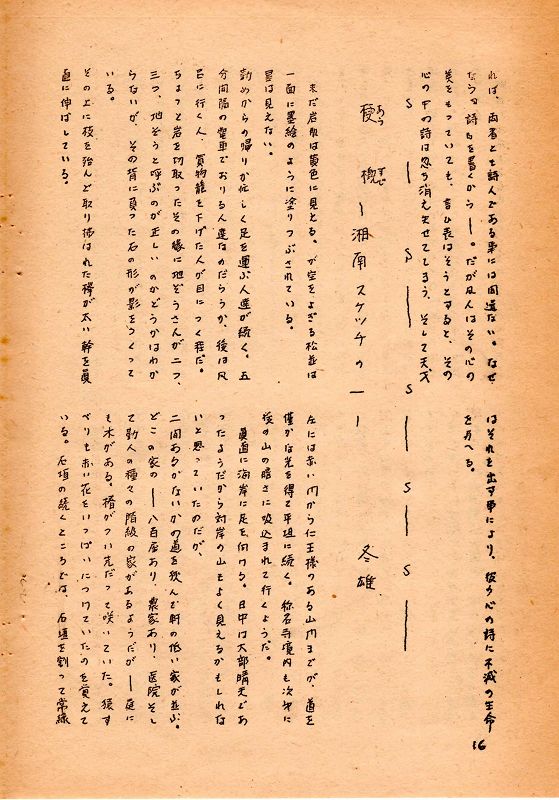 れば、両者とも詩人である事には間違ない。なぜ
なら日詩もを書くから——。だが凡人はその心の
美をもっていても、言ひ表はそうとすると、その
心の下の詩は忽ち消え失せてしまう、そして天才
はそれを出す事により、彼の心の詩に不滅の生命
を与へる。
S — S — S — S — S —
稜 あう
橪
—湘南スケッチの一—
冬雄
まだ岩肌は黄色に見とる。が空をよぎる松並は
一面に墨絵のように塗りつぶされている。
星は見えない。
勤めからの帰りか忙しく足を運ぶ人達が続く。五
分間隔の電車でおりる人達なのだらうか、後は凡
呂に行く人、買物籠を下げた人が目につく程だ。
ちょっと岩を切取ったその縁に地ぞうさんが二つ、
三つ、地ぞうと呼ぶのが正しいのかどうかはわか
らないが、その背に負った石の形が影をつくって
いる。
その上に枝を殆んど取り拂はれた欅が太い幹を真
直に伸ばしている。
左には赤い門から仁王様のある山門までが、道を
僅かな光を得て平坦に続く。称名寺境内も次第に
後の山の暗さに吸込まれて行くようだ。
真直に海岸に足を向ける。日中は大部晴天であ
ったようだから対岸の山もよく見えるかもしれな
いと思っていたのだが、
二間あるかないかの道を狭んで軒の低い家が並ぶ。
どこの家の——八百屋あり、農家あり、医院そし
て勤人の種々の階級の家があるようだが——庭に
も木がある。椿がつい先だって咲いていた。猿す
べりも赤い花をいっぱいにつけていたのを覚えて
いる。石垣の続くところでは、石垣を割って常緑
16